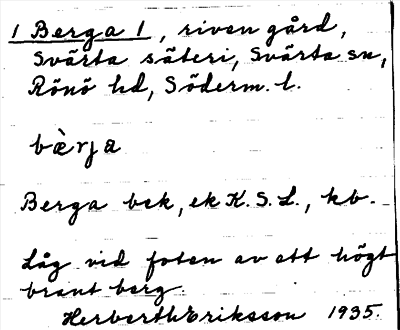 1 Berga 1, riven gård,
Svärta säteri, Svärta sn,
Rönö hd, Söderm. l.
bærja
Berga bek, ek K.S.L., kb.
Låg vid foten av ett högt
brant berg.
Herberth Eriksson 1935.